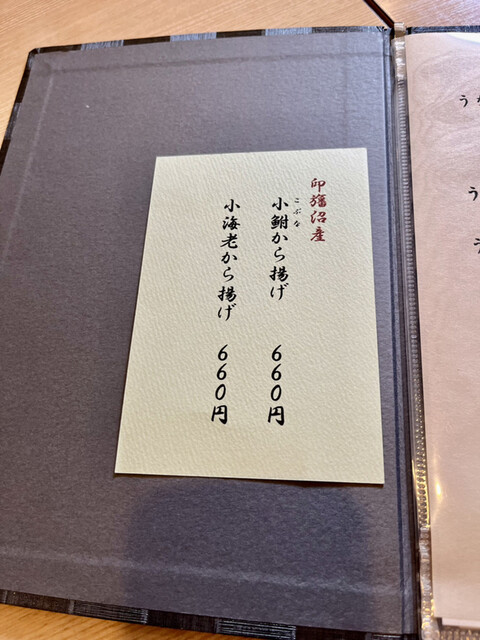 印旛沼産
こぶな
小鮒から揚げ 660円
小海老から揚げ 660円
う
う